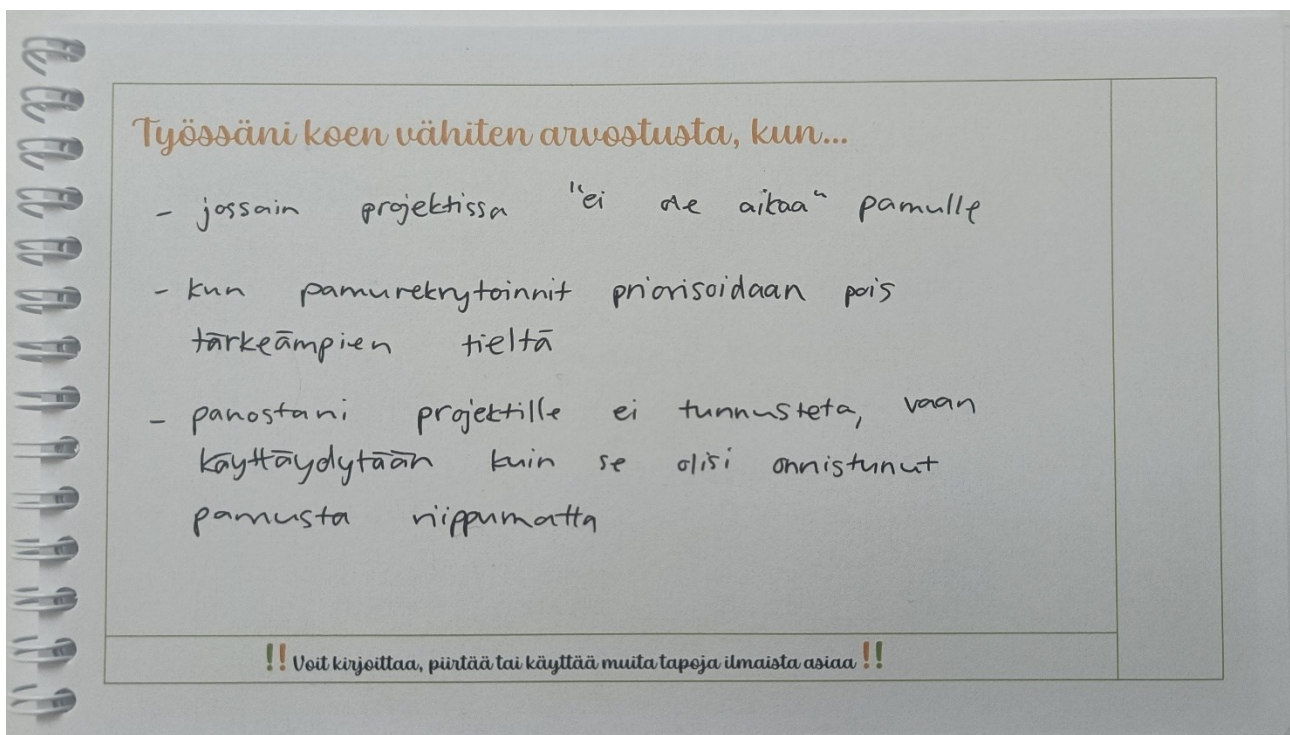 Työssäni koen vähiten arvostusta, kun...
- jossain projektissa "ei ole aikaa" pamulle
- kun pamurekrytoinnit priorisoidaan pois
tärkeämpien tieltä
- panostani projektille ei tunnusteta, vaan
käyttäydytään kuin se olisi onnistunut
pamusta riippumatta
!! Voit kirjoittaa, piirtää tai käyttää muita tapoja ilmaista asiaa !!